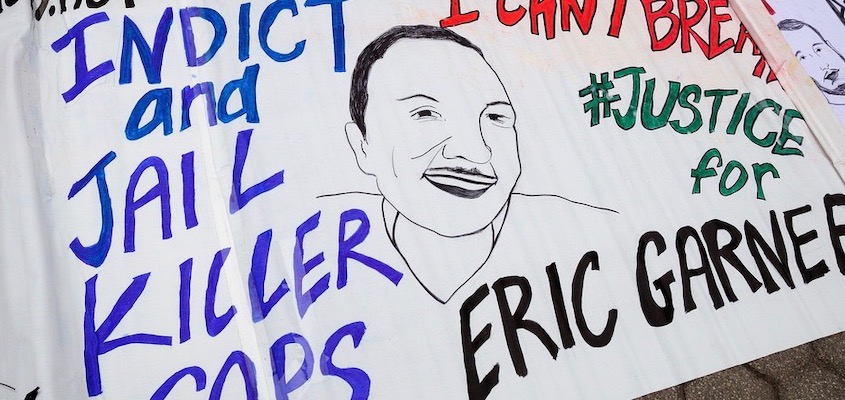 INDICT
and
JAIL
KILLER
COPS
I CAN'T
BREA
#JUSTICE
for
ERIC GARNER